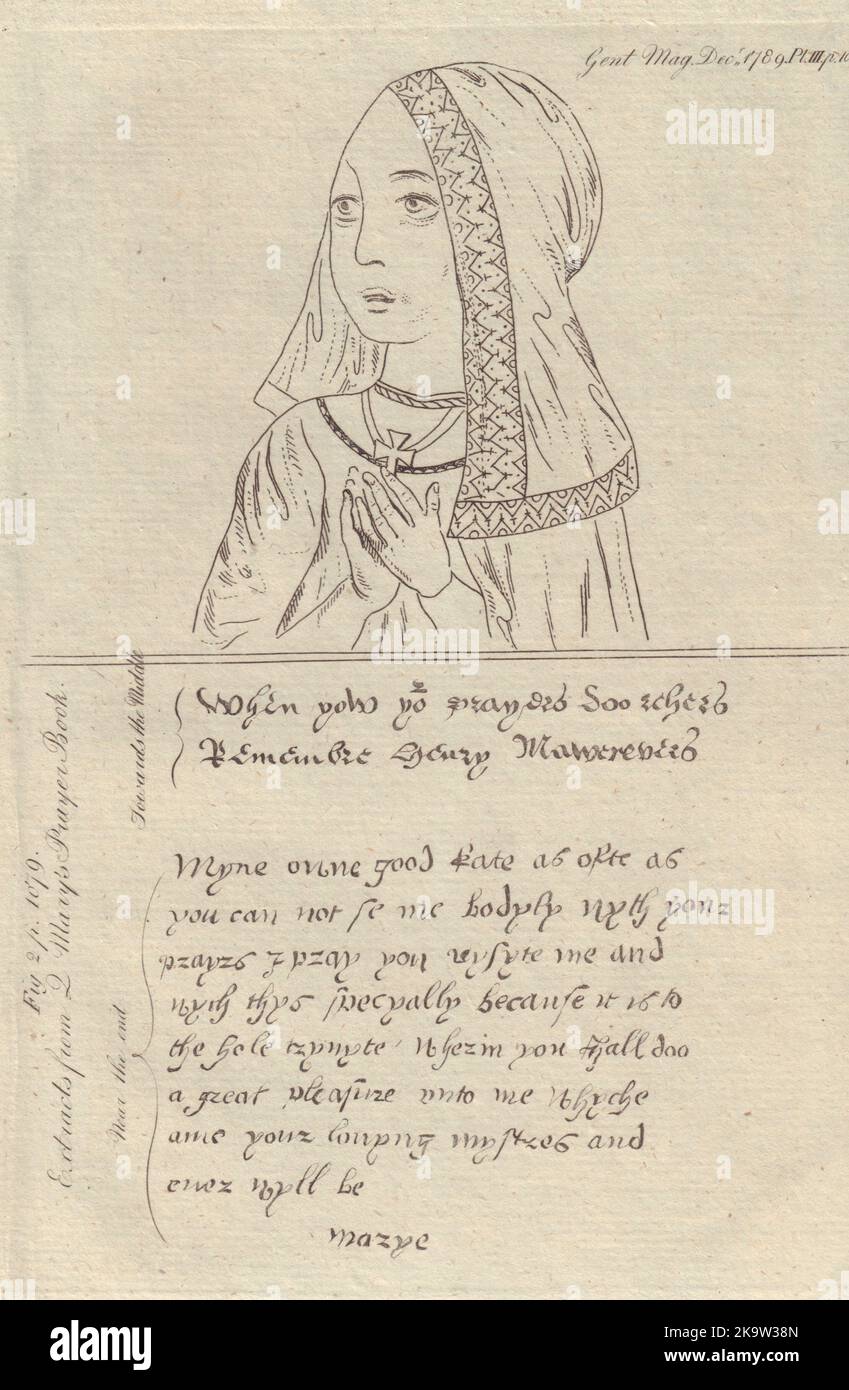 Gent Mag. Decr. 1789. Pl. III. p. 10
Fig 2. p. 1079.
Extracts from Q Mary's Prayer Book.
Towards the Middle
When yow yor prayers doo rehers
Remembre Henry Mawerevers
Near the end
Myne owne good Kate as ofte as
you can not se me bodyly wyth your
prayrs I pray you vysyte me and
wyth thys specyally because it is to
the hole trynyte wherin you shall doo
a great pleasure unto me whyche
ame your lovyng mystres and
ever wyll be
marye
alamy
Image ID: 2K9W38N
www.alamy.com